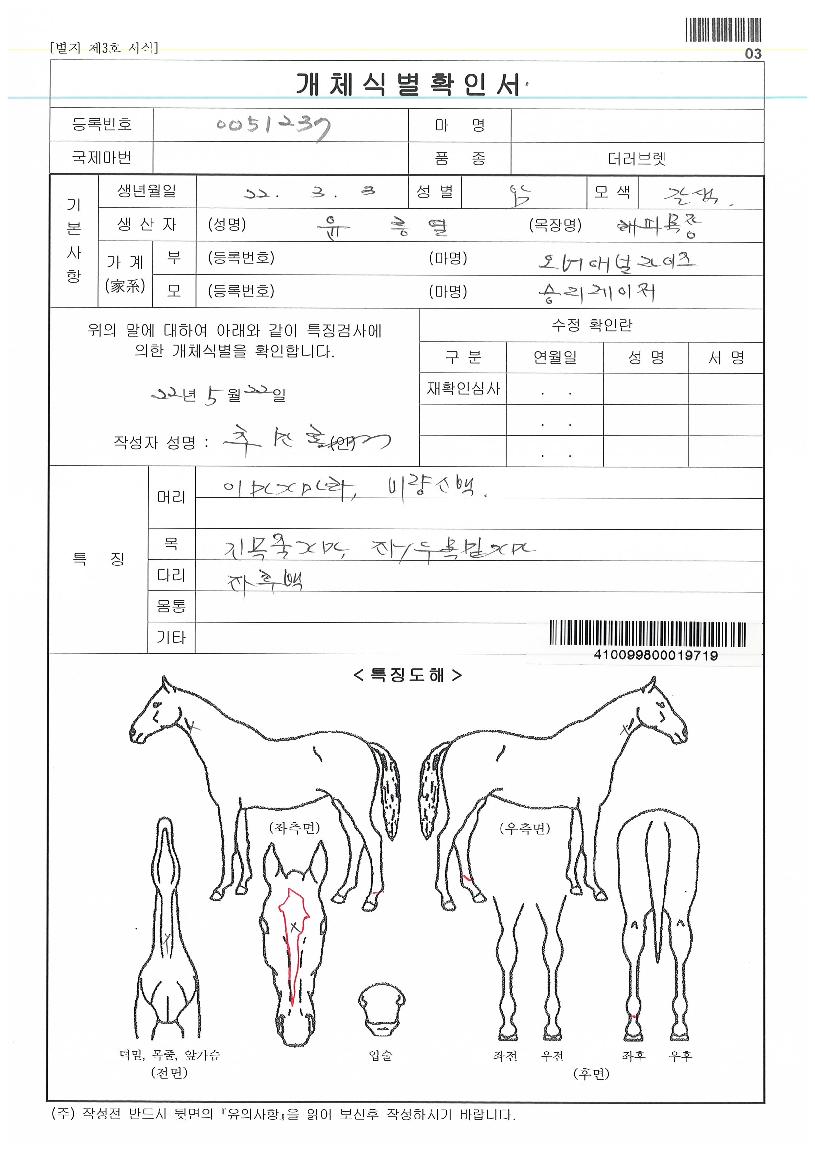 [별지 제3호 서식]
03
개체식별확인서
등록번호 0051237 마 명
국제마번 품 종 더러브렛
기본사항
생년월일 22. 3. 8 성별 암 모색 갈색.
생산자 (성명) 유 흥 열 (목장명) 해피목장
가계(家系) 부 (등록번호) (마명) 오버애널라이즈
모 (등록번호) (마명) 승리게이저
위의 말에 대하여 아래와 같이 특징검사에
의한 개체식별을 확인합니다.
22년 5월 22일
작성자 성명 : (인)
수정 확인란
구 분 연월일 성 명 서 명
재확인심사 . .
. .
. .
특 징
머리 비량선백.
목
다리 좌후백
몸통
기타
410099800019719
< 특징도해 >
(좌측면) (우측면)
턱밑, 목줄, 앞가슴
(전면)
입술
좌전 우전 좌후 우후
(후면)
(주) 작성전 반드시 뒷면의 『유의사항』을 읽어 보신후 작성하시기 바랍니다.